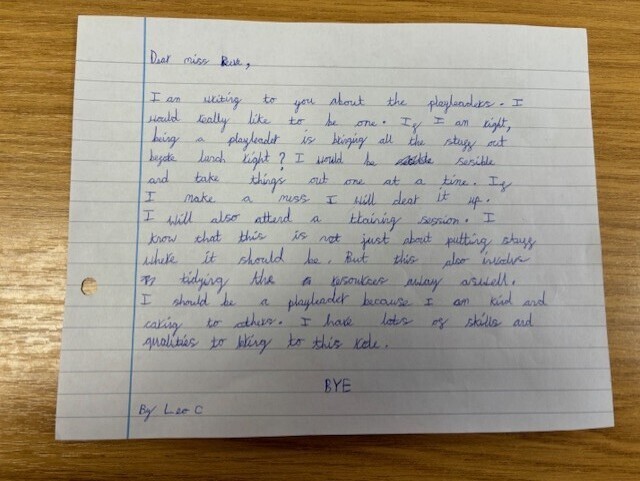 Dear miss Reeve,
I am writing to you about the playleaders. I
would really like to be one. If I am right,
being a playleader is bringing all the stuff out
before lunch right? I would be sesible
and take things out one at a time. If
I make a mess I will clear it up.
I will also attend a training session. I
know that this is not just about putting stuff
where it should be. But this also involve
tidying the resources away aswell.
I should be a playleader because I am kind and
caring to others. I have lots of skills and
qualities to bring to this role.
BYE
By Leo C